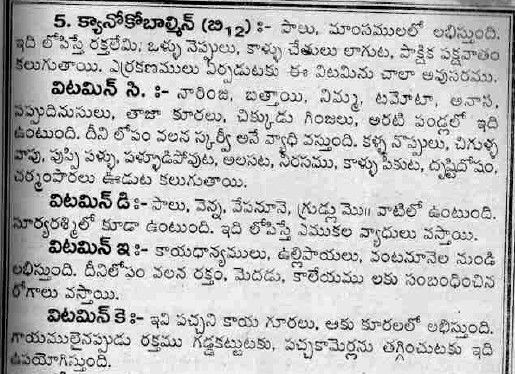 5. క్యానోకోబాల్మిన్ (బి12) :- పాలు, మాంసములలో లభిస్తుంది.
ఇది లోపిస్తే రక్తలేమి, ఒళ్ళు నెప్పులు, కాళ్ళు చేతులు లాగుట, పాక్షిక పక్షవాతం
కలుగుతాయి. ఎర్రకణములు ఏర్పడుటకు ఈ విటమిను చాలా అవుసరము.
విటమిన్ సి. :- నారింజ, బత్తాయి, నిమ్మ, టమోటా, అనాస,
పప్పుదినుసులు, తాజా కూరలు, చిక్కుడు గింజలు, అరటి పండ్లలో ఇది
ఉంటుంది. దీని లోపం వలన స్కర్వీ అనే వ్యాధి వస్తుంది. కళ్ళ నొప్పులు, చిగుళ్ళ
వాపు, పుప్పి పళ్ళు, పళ్ళూడిపోవుట, అలసట, నీరసము, కాళ్ళు పీకుట, దృష్టిదోషం,
చర్మంపొరలు ఊడుట కలుగుతాయి.
విటమిన్ డి :- పాలు, వెన్న, వేపనూనె, గ్రుడ్లు మొ॥ వాటిలో ఉంటుంది.
సూర్యరశ్మిలో కూడా ఉంటుంది. ఇది లోపిస్తే ఎముకల వ్యాధులు వస్తాయి.
విటమిన్ ఇ :- కాయధాన్యములు, ఉల్లిపాయలు, వంటనూనెల నుండి
లభిస్తుంది. దీనిలోపం వలన రక్తం, మెదడు, కాలేయము లకు సంబంధించిన
రోగాలు వస్తాయి.
విటమిన్ కె :- ఇవి పచ్చని కాయ గూరలు, ఆకు కూరలలో లభిస్తుంది.
గాయములైనప్పుడు రక్తము గడ్డకట్టుటకు, పచ్చకామెర్లను తగ్గించుటకు ఇది
ఉపయోగిస్తుంది.